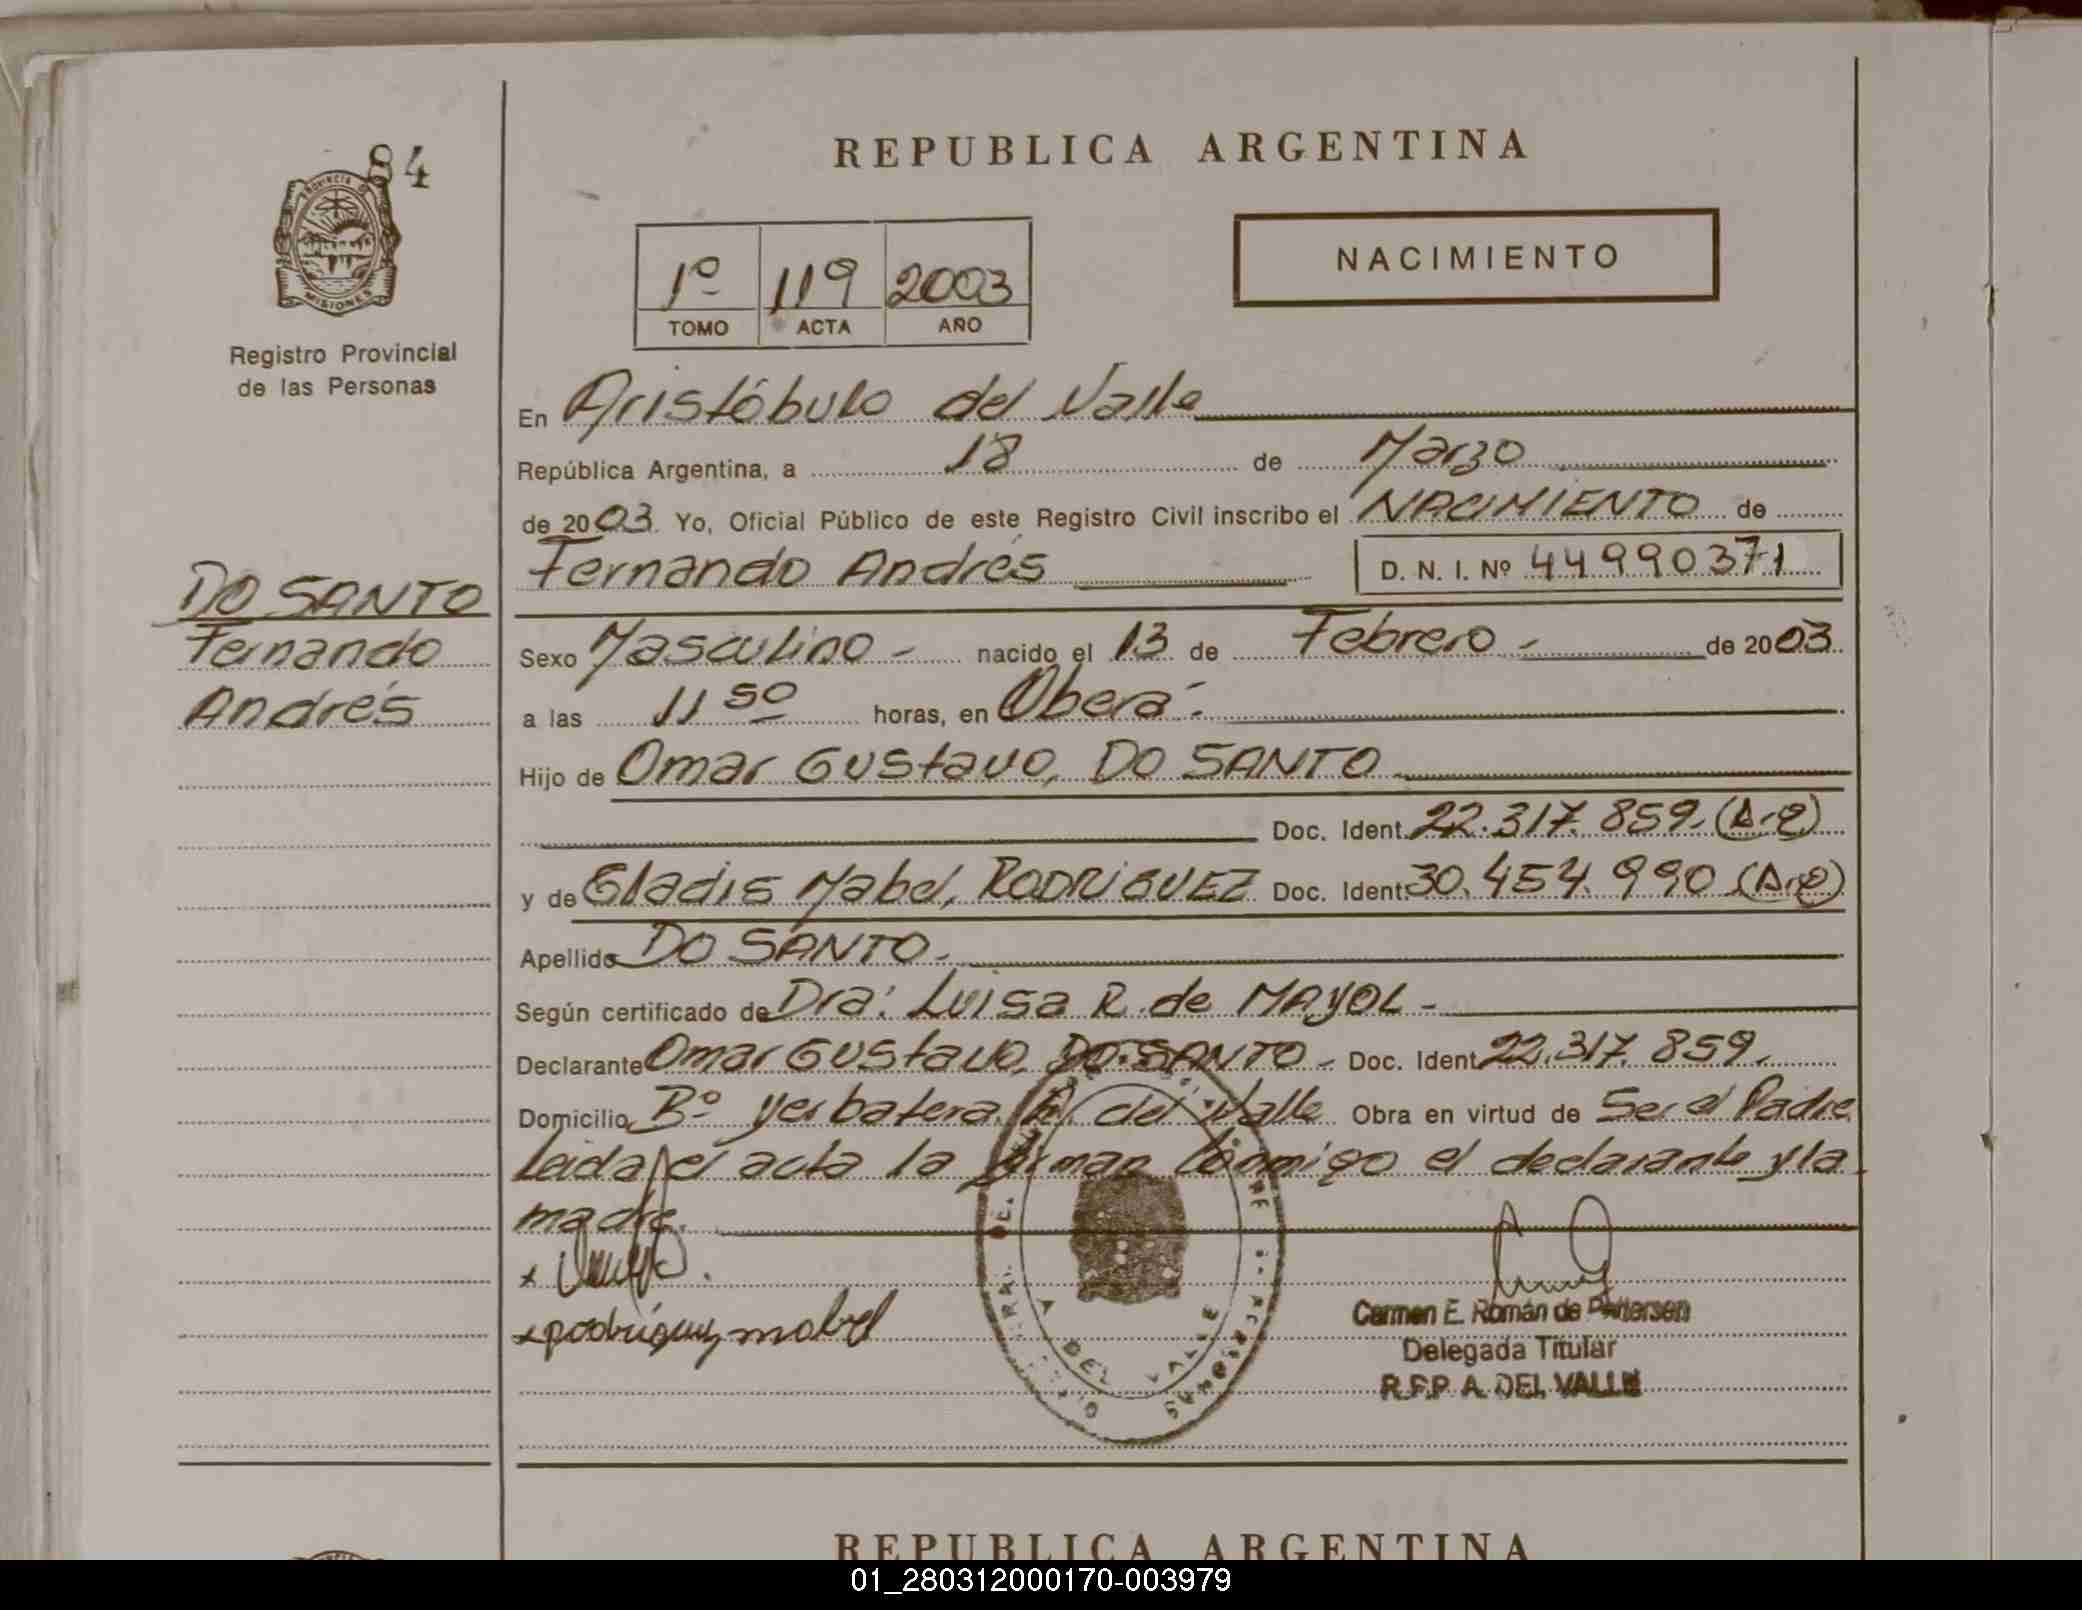 84
PROVINCIA DE
MISIONES
Registro Provincial
de las Personas
DO SANTO
Fernando
Andrés
REPUBLICA ARGENTINA
1º 119 2003
TOMO ACTA AÑO
NACIMIENTO
En Aristóbulo del Valle
República Argentina, a 18 de Marzo
de 2003. Yo, Oficial Público de este Registro Civil inscribo el NACIMIENTO de
Fernando Andrés D. N. I. Nº 44990371
Sexo Masculino - nacido el 13 de Febrero - de 2003.
a las 11 50 horas, en Oberá -
Hijo de Omar Gustavo, DO SANTO
Doc. Ident. 22.317.859. (Arg)
y de Gladis Mabel, RODRIGUEZ Doc. Ident. 30.454.990 (Arg)
Apellido DO SANTO -
Según certificado de Dra: Luisa R. de MAYOL -
Declarante Omar Gustavo, DO SANTO - Doc. Ident. 22.317.859.
Domicilio Bº Yerbatera, A. del Valle Obra en virtud de Ser el Padre
Leida el acta la firman conmigo el declarante y la
madre.
x
x Rodriguez mabel
DEL VALLE
Carmen E. Román de Pettersen
Delegada Titular
R.P.P. A. DEL VALLE
REPUBLICA ARGENTINA
01_280312000170-003979